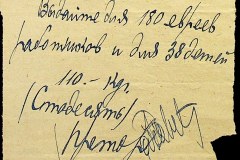 Выдайте для 180 евреев
работников и для 38 детей
110.- кгр.
(Стодесять)